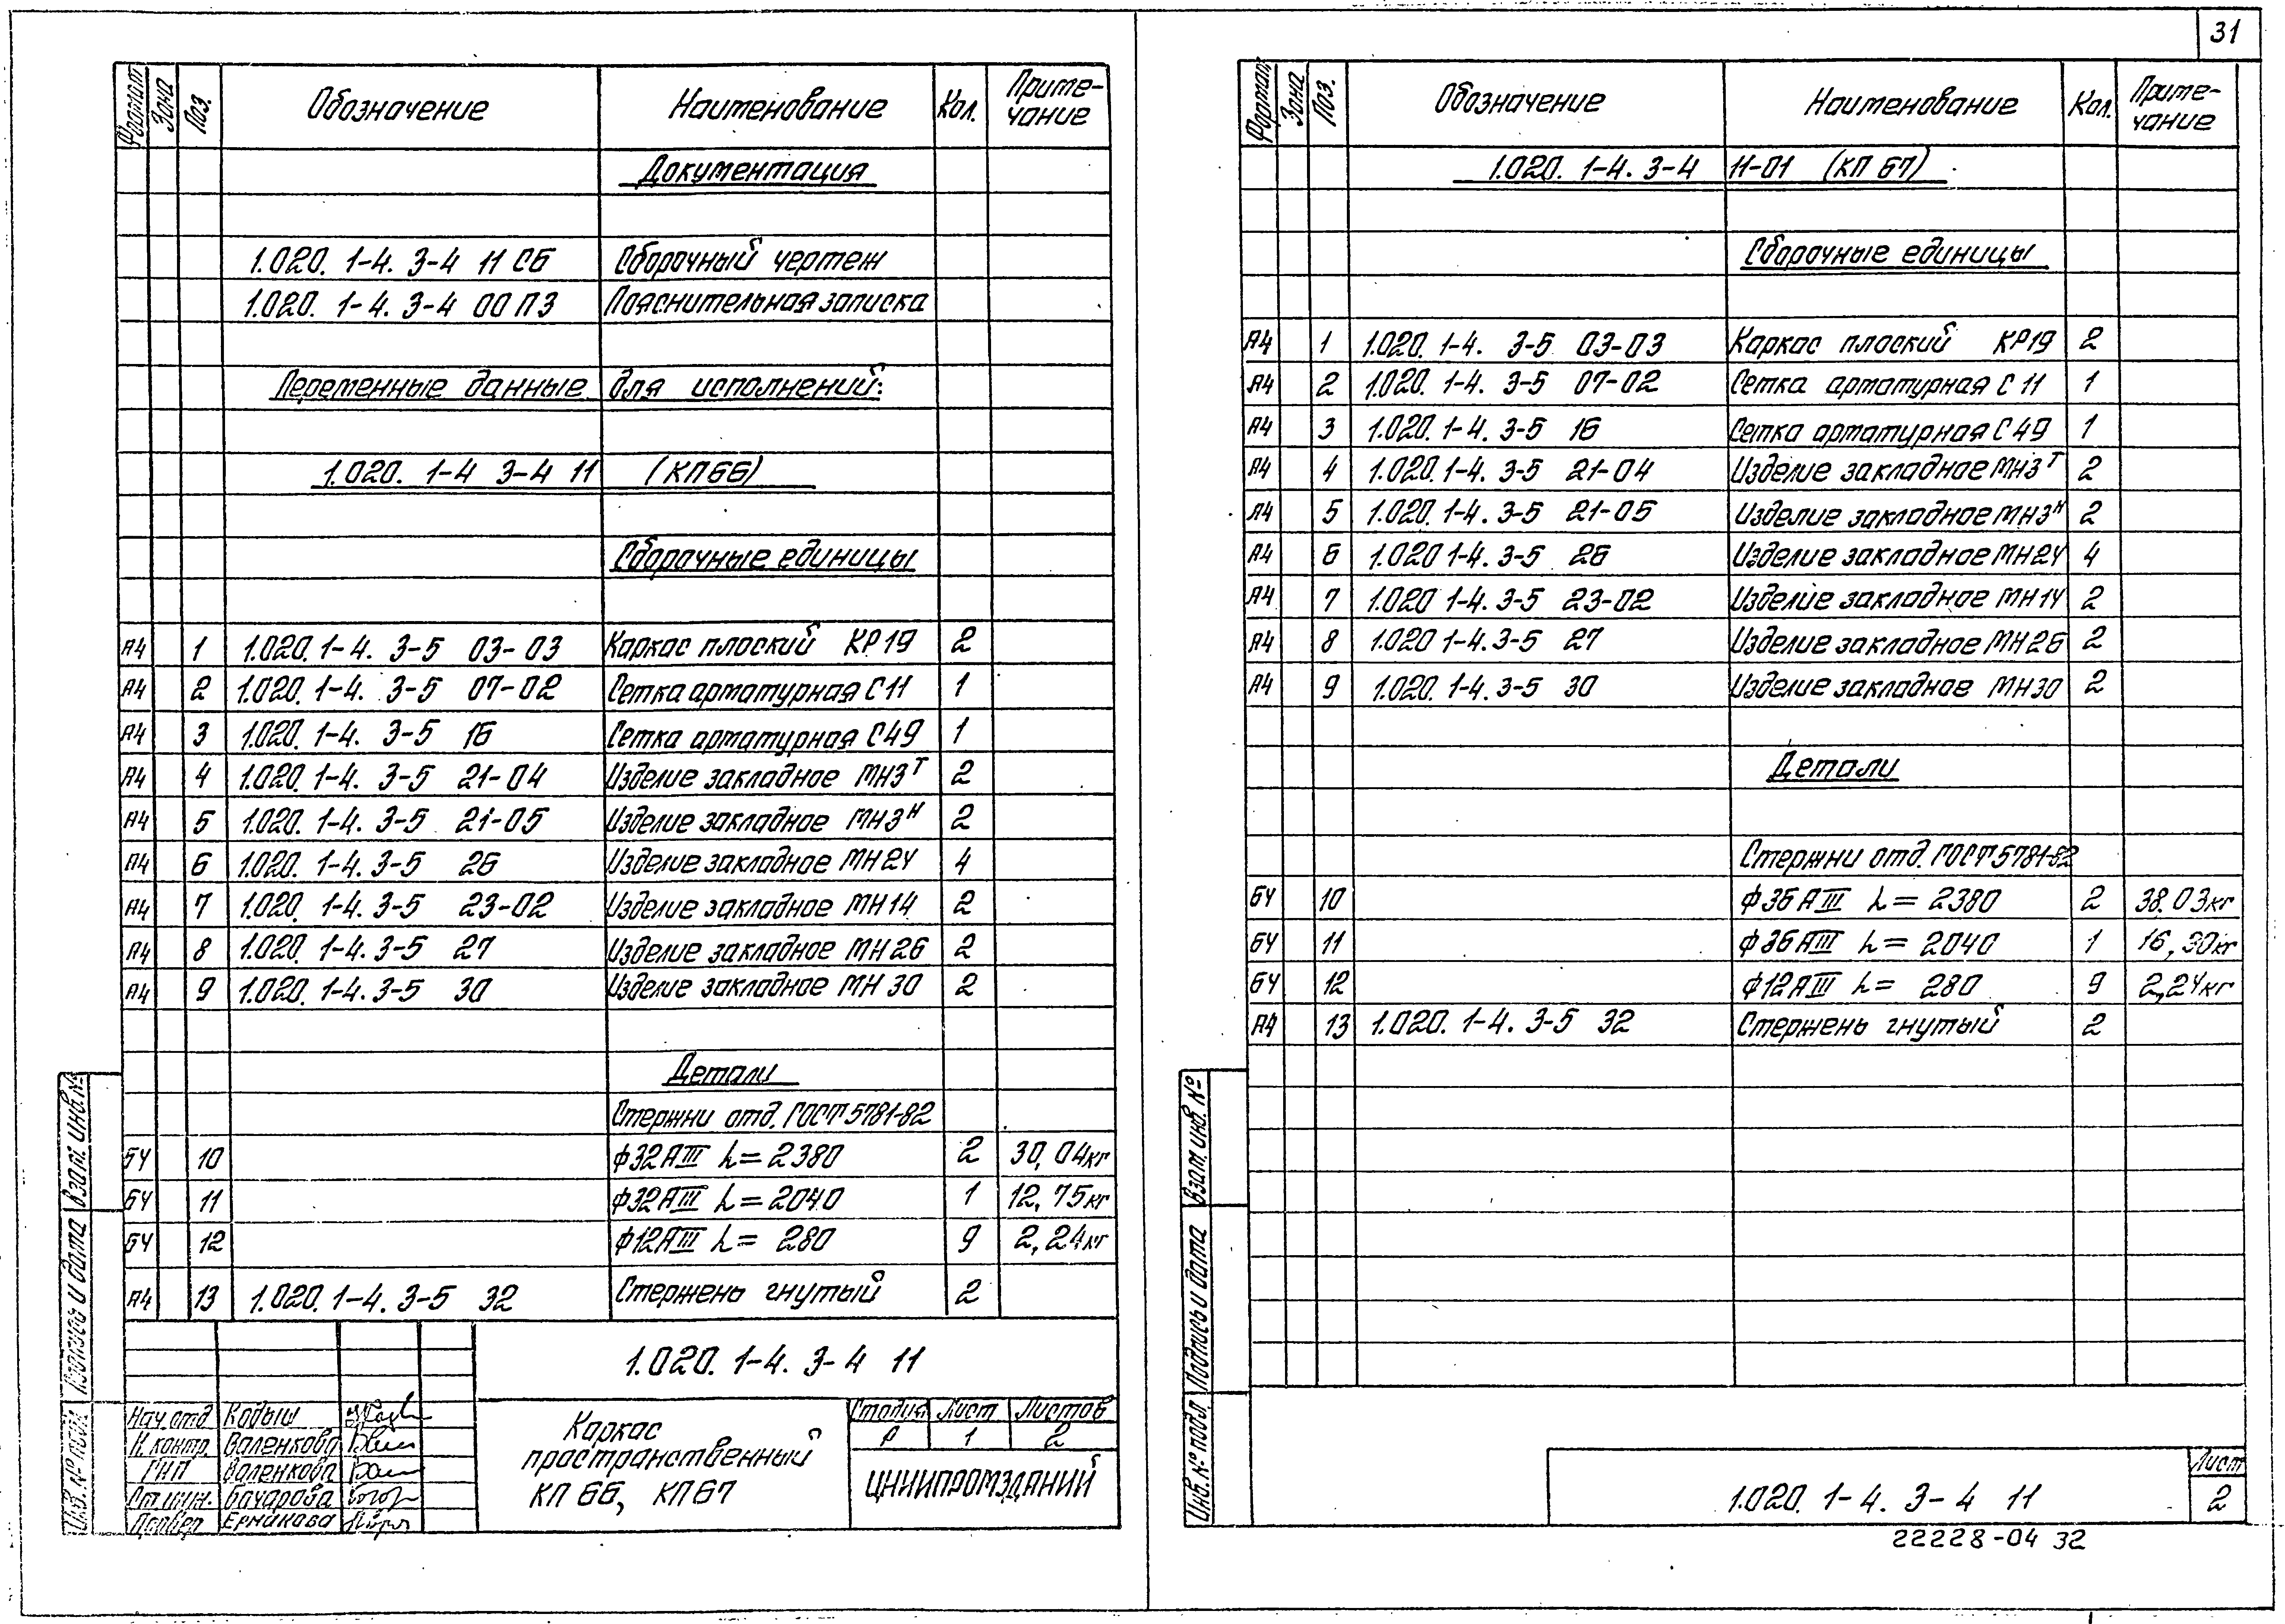 31
Формат Зона Поз. Обозначение Наименование Кол. Приме-
чание
Документация
1.020. 1-4. 3-4 11 СБ Сборочный чертеж
1.020. 1-4. 3-4 00 ПЗ Пояснительная записка
Переменные данные для исполнений:
1.020. 1-4 3-4 11 (КП 66)
Сборочные единицы
А4 1 1.020. 1-4. 3-5 03-03 Каркас плоский КР19 2
А4 2 1.020. 1-4. 3-5 07-02 Сетка арматурная С11 1
А4 3 1.020. 1-4. 3-5 16 Сетка арматурная С49 1
А4 4 1.020. 1-4. 3-5 21-04 Изделие закладное МН3т 2
А4 5 1.020. 1-4. 3-5 21-05 Изделие закладное МН3н 2
А4 6 1.020. 1-4. 3-5 26 Изделие закладное МН24 4
А4 7 1.020. 1-4. 3-5 23-02 Изделие закладное МН14 2
А4 8 1.020. 1-4. 3-5 27 Изделие закладное МН26 2
А4 9 1.020. 1-4. 3-5 30 Изделие закладное МН 30 2
Детали
Стержни отд. ГОСТ 5781-82
БЧ 10 Ф32АIII L=2380 2 30,04кг
БЧ 11 Ф32АIII L=2040 1 12,75кг
БЧ 12 Ф12АIII L= 280 9 2,24кг
А4 13 1.020. 1-4. 3-5 32 Стержень гнутый 2
Инв. № подл. Подпись и дата Взам. инв. №
1.020. 1-4. 3-4 11
Нач. отд. Кодыш
Н. контр. Валенкова
ГИП Валенкова
Ст. инж. Бачарова
Провер. Ермакова
Каркас
пространственный
КП 66, КП67
Стадия Лист Листов
Р 1 2
ЦНИИПРОМЗДАНИЙ
Формат Зона Поз. Обозначение Наименование Кол. Приме-
чание
1.020. 1-4. 3-4 11-01 (КП 67)
Сборочные единицы
А4 1 1.020. 1-4. 3-5 03-03 Каркас плоский КР19 2
А4 2 1.020. 1-4. 3-5 07-02 Сетка арматурная С 11 1
А4 3 1.020. 1-4. 3-5 16 Сетка арматурная С 49 1
А4 4 1.020. 1-4. 3-5 21-04 Изделие закладное МН3т 2
А4 5 1.020. 1-4. 3-5 21-05 Изделие закладное МН3н 2
А4 6 1.020 1-4. 3-5 26 Изделие закладное МН24 4
А4 7 1.020 1-4. 3-5 23-02 Изделие закладное МН14 2
А4 8 1.020 1-4. 3-5 27 Изделие закладное МН26 2
А4 9 1.020. 1-4. 3-5 30 Изделие закладное МН30 2
Детали
Стержни отд. ГОСТ 5781-82
БЧ 10 Ф36АIII L=2380 2 38.03кг
БЧ 11 Ф36АIII L=2040 1 16,30кг
БЧ 12 Ф12АIII L= 280 9 2,24кг
А4 13 1.020. 1-4. 3-5 32 Стержень гнутый 2
Инв. № подл. Подпись и дата Взам. инв. №
1.020. 1-4. 3-4 11
Лист
2
22228-04 32